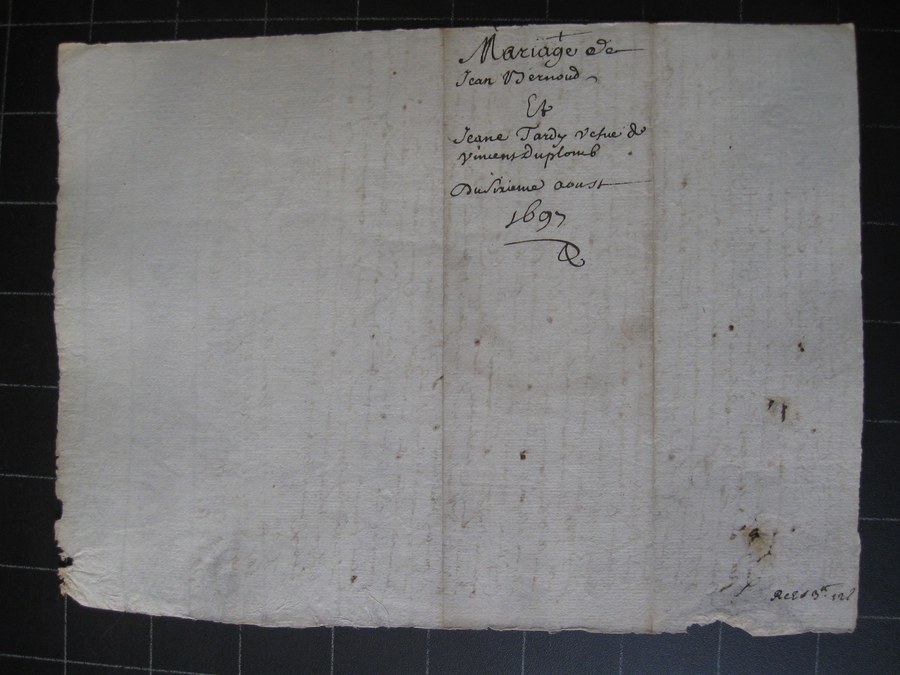 Mariage de
Jean Bernoud
Et
Jeane Tardy vefue de
Vincent Duplomb
Du sixieme aoust
1697